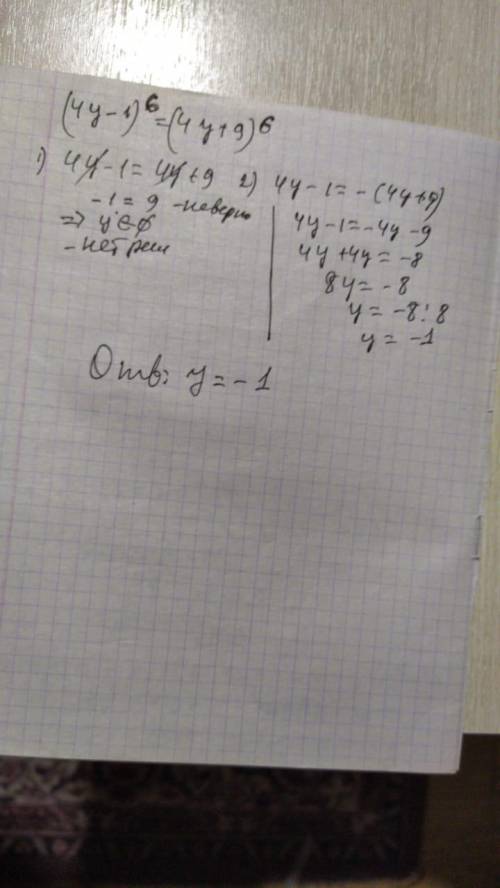 (4y-1)⁶=(4y+9)⁶
1) 4y-1=4y+9
-1=9 -неверно
=> y∈∅
-нет реш
2) 4y-1=-(4y+9)
4y-1=-4y-9
4y+4y=-8
8y=-8
y=-8:8
y=-1
Отв: y=-1